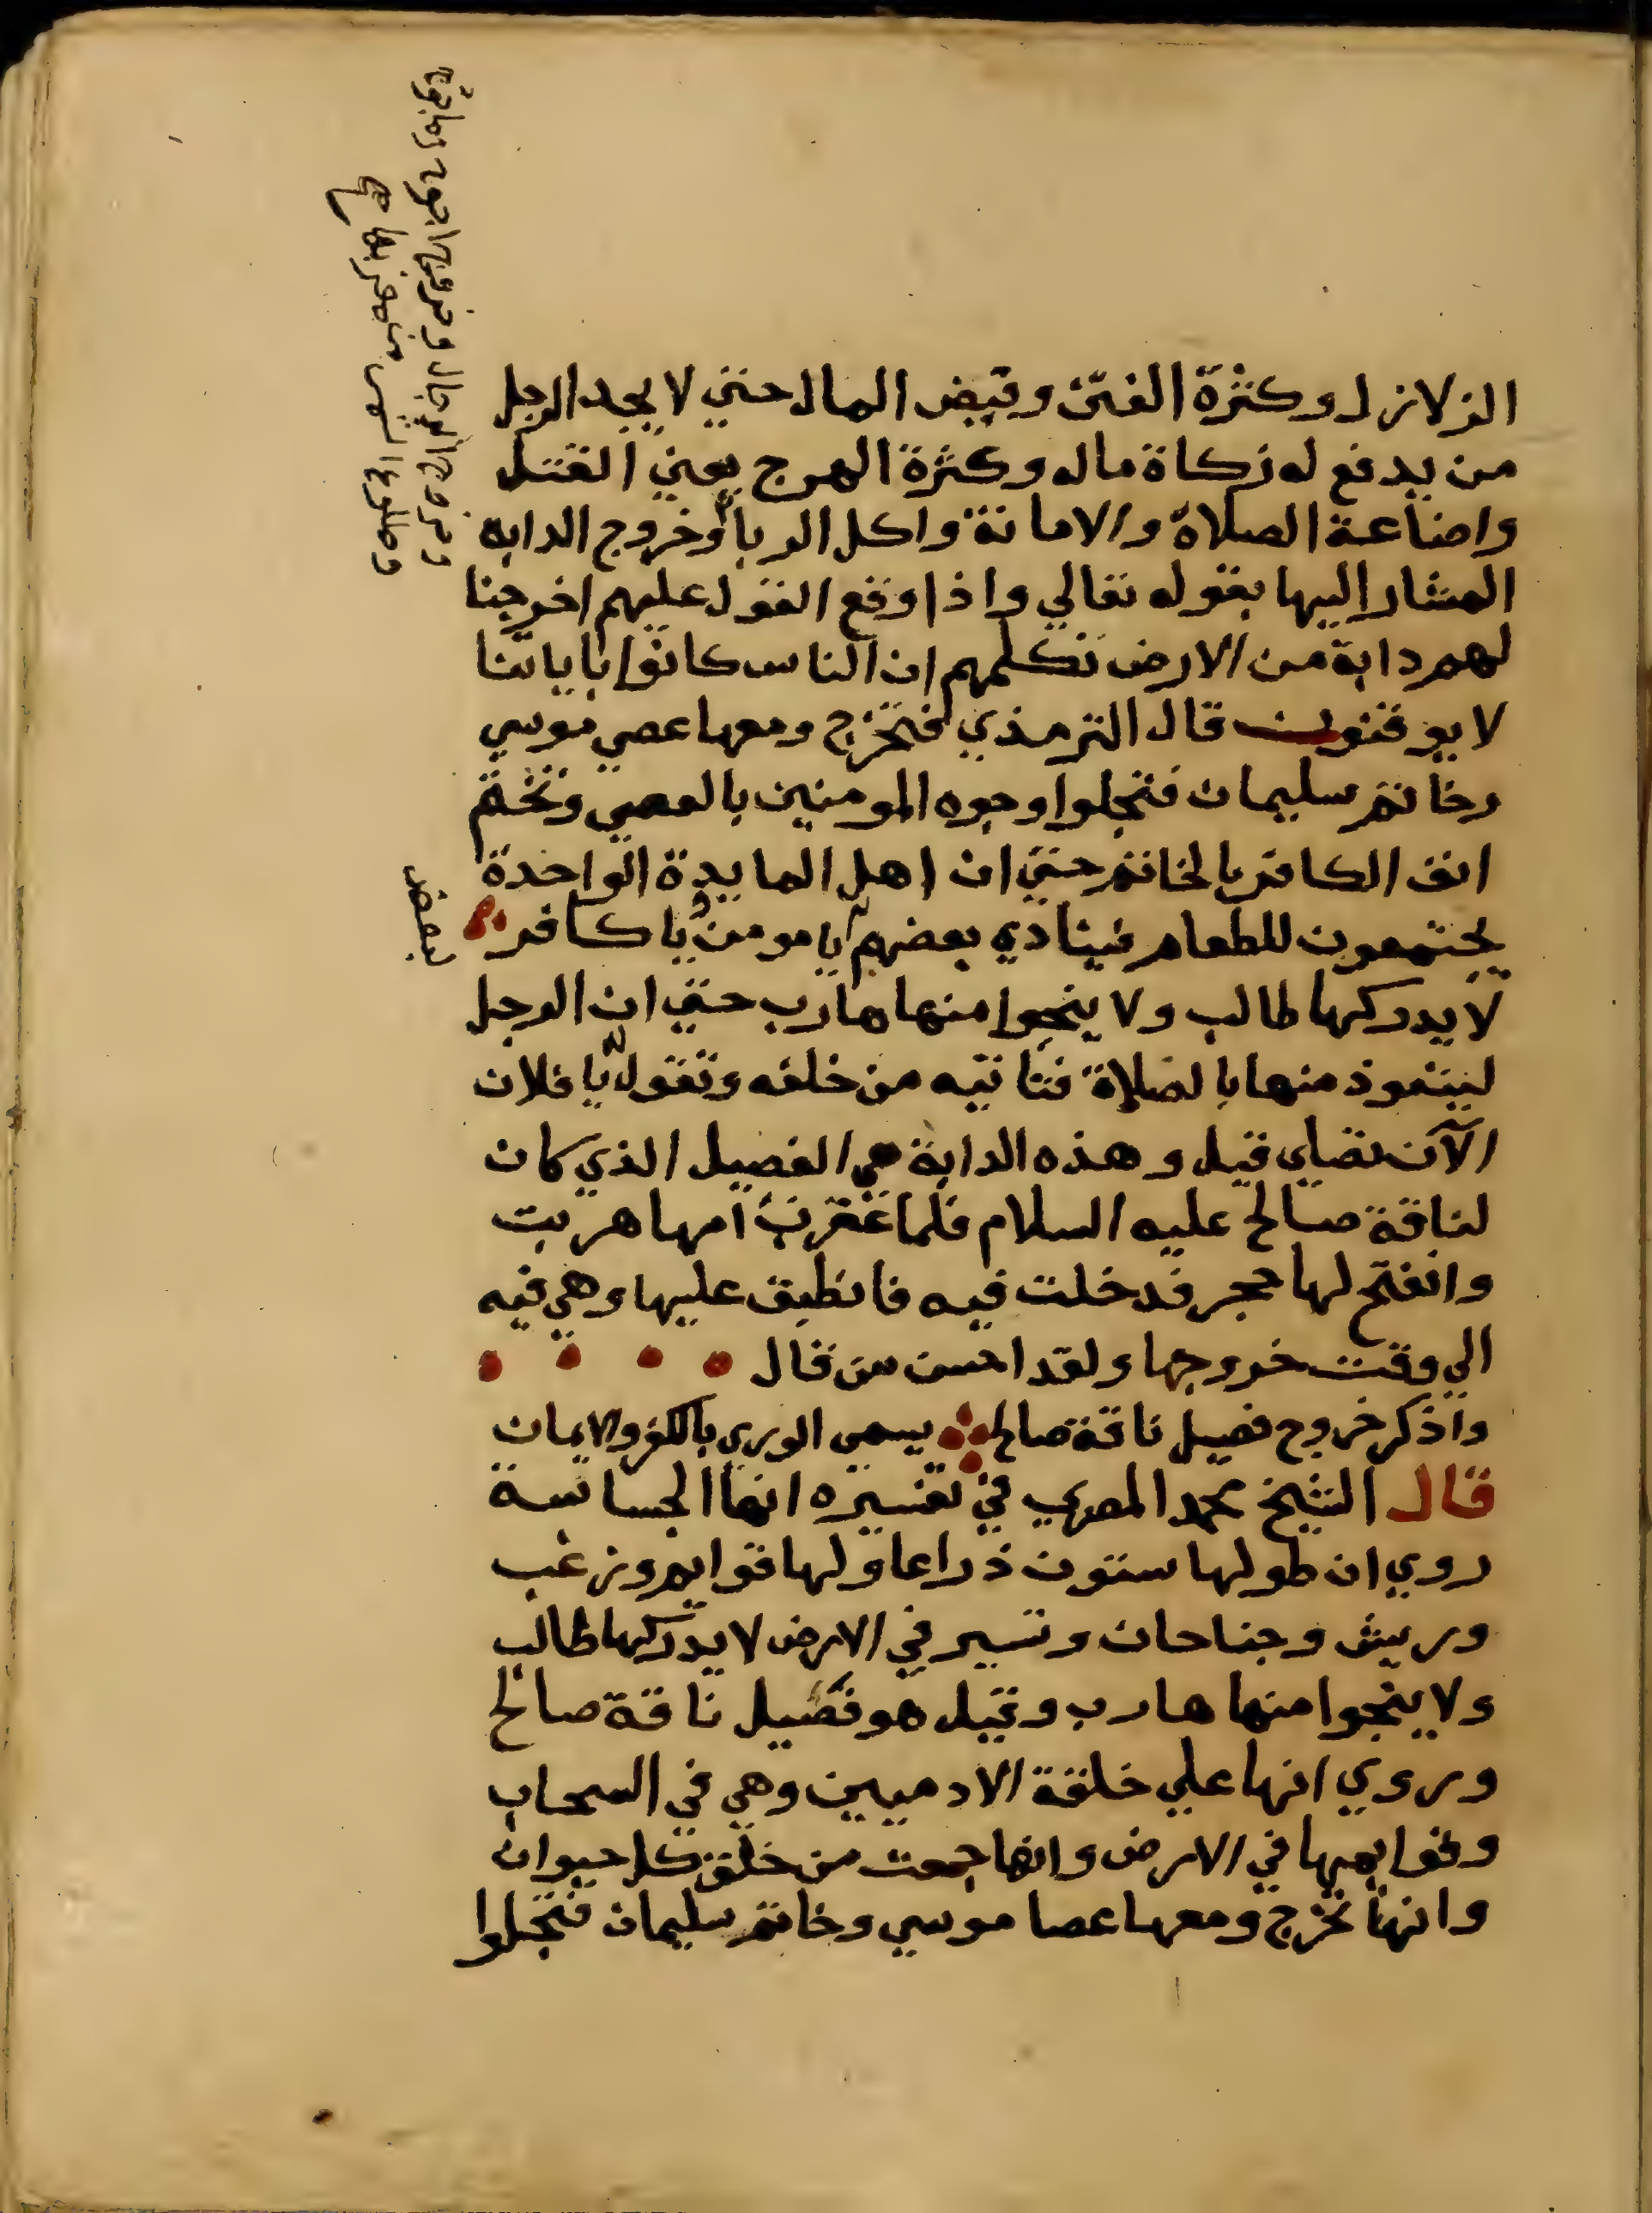 الزلازل وكثرة الفتن وقبض المال حتي لا يجد الرجل
من يدفع له زكاة ماله وكثرة الهرج يعني القتل
واضاعة الصلاة والامانة واكل الربا وخروج الدابة
المشار اليها بقوله تعالي واذا وقع القول عليهم اخرجنا
لهم دابة من الارض تكلمهم ان الناس كانوا باياتنا
لا يوقنون قال الترمذي فتخرج ومعها عصي موسي
وخاتم سليمان فتجلوا وجوه المومنين بالعصي وتختم
انف الكافر بالخاتم حتي ان اهل المايدة الواحدة
يجتمعون للطعام فينادي بعضهم يا مومن يا كافر
لا يدركها طالب ولا ينجوا منها هارب حتي ان الرجل
ليتعوذ منها بالصلاة فتاتيه من خلفه وتقول يا فلان
الآن تصلي قيل وهذه الدابة هي الفصيل الذي كان
لناقة صالح عليه السلام فلما عقرت امها هربت
وانفتح لها حجر فدخلت فيه فانطبق عليها وهي فيه
الي وقت خروجها ولقد احسن من قال
واذكر خروج فصيل ناقة صالح يسمي الوري بالكفر والايمان
قال الشيخ محمد المصري في تفسيره انها الجساسة
روي ان طولها ستون ذراعا ولها قوايم وزغب
وريش وجناحان وتسير في الارض لا يدركها طالب
ولا ينجوا منها هارب وقيل هو فصيل ناقة صالح
وروي انها علي خلقة الادميين وهي في السحاب
وقوايمها في الارض وانها جمعت من خلق كل حيوان
وانها تخرج ومعها عصا موسي وخاتم سليمان فتجلوا
وخروج الدجال وخروج ياجوج وماجوج
وطلوع الشمس من مغربها صح
بعض